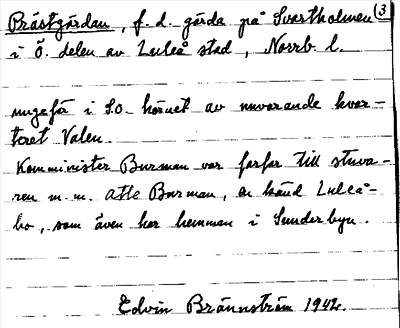 Prästgärdan, f.d. gärda på Svartholmen (3
i Ö. delen av Luleå stad, Norrb. l.
ungefär i S.O. hörnet av nuvarande kvar-
teret Valen.
Komminister Burman var farfar till stuva-
ren m.m. Atle Burman, en känd Luleå-
bo, som även har hemman i Sunderbyn.
Edvin Brännström 1942.